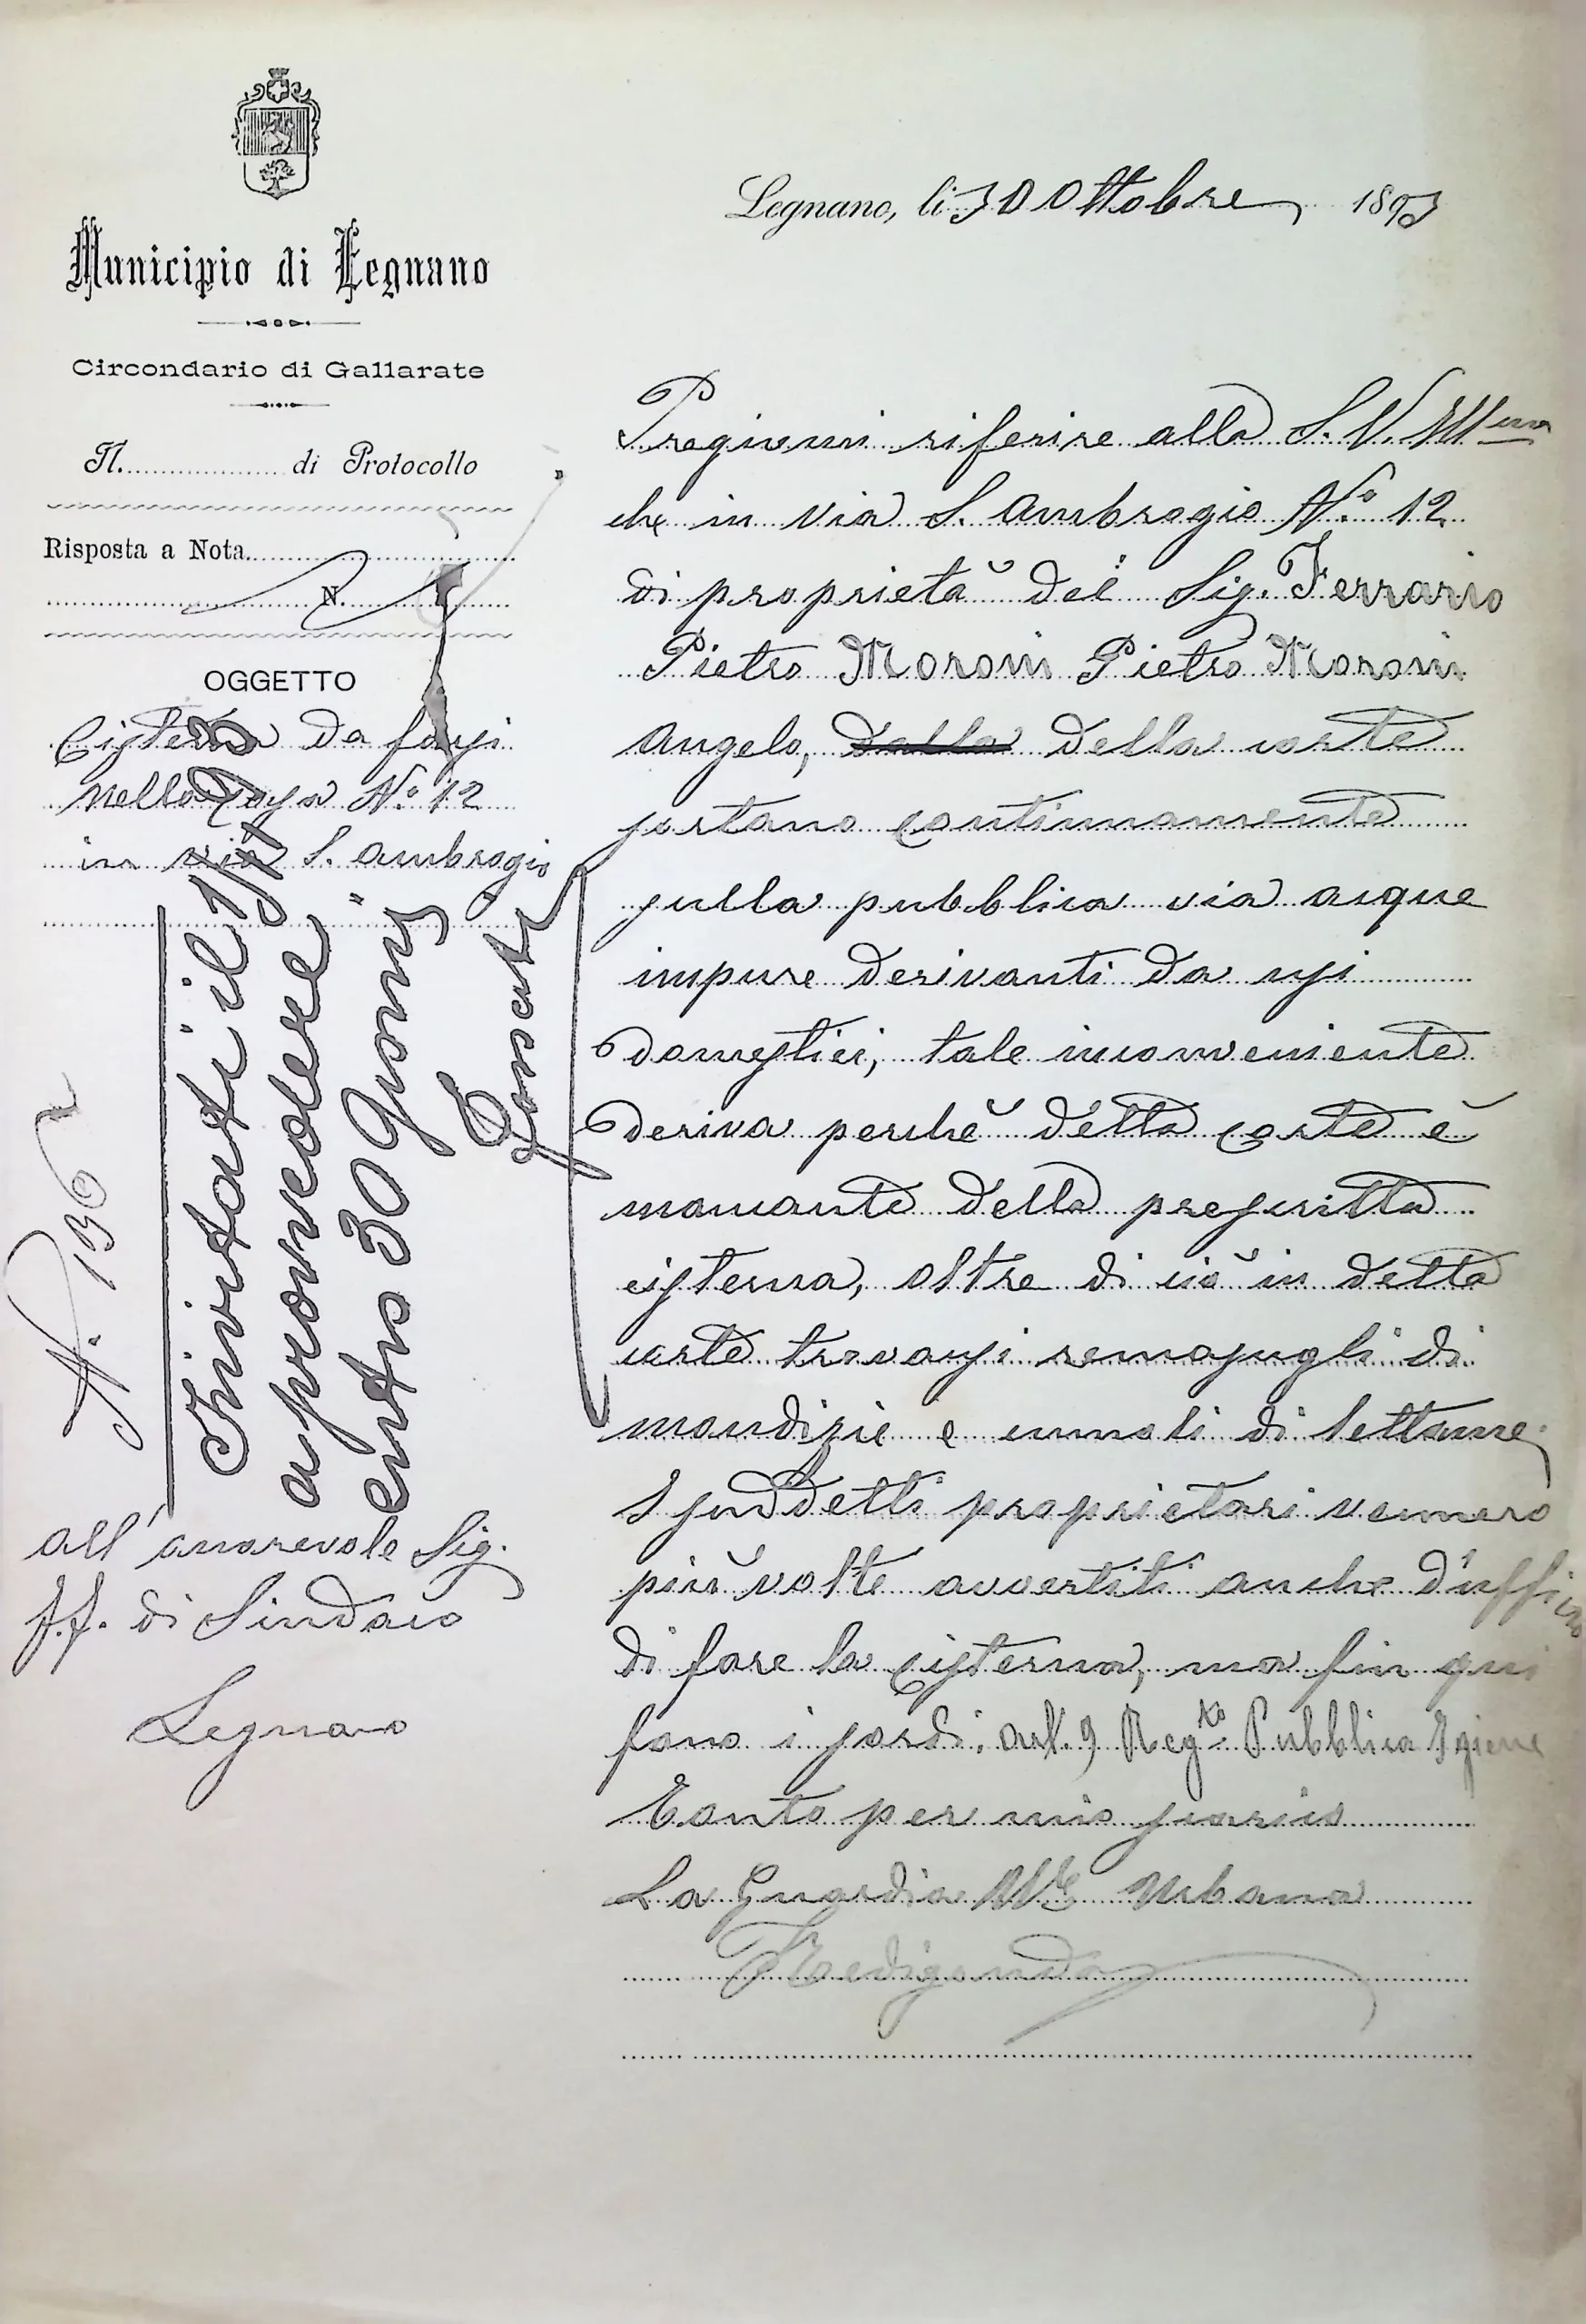 Municipio di Legnano
Circondario di Gallarate
N. di Protocollo
Risposta a Nota
N.
OGGETTO
Cisterna da farsi
nella casa N.° 12
in via S. Ambrogio
Legnano, li 30 Ottobre 1893
Pregiomi riferire alla S. V. Ill.ma
che in via S. Ambrogio N.° 12
di proprietà del Sig. Ferrario
Pietro Moroni Pietro Moroni
Angelo, dalla della corte
sortano continuamente
sulla pubblica via acque
impure derivanti da usi
domestici, tale inconveniente
deriva perchè detta corte è
mancante della prescritta
cisterna, oltre di ciò in detta
corte trovansi rimasugli di
mondizie e cumoli di lettame.
I suddetti proprietari vennero
più volte avvertiti anche d'ufficio
di fare la cisterna, ma fin qui
fano i sordi. Art. 9 Reg.to Pubblica Igiene
Tanto per mio scarico
La Guardia Urbana
N. 1362
Invitati il 1/11
a provvedere
entro 30 giorni
all'onorevole Sig.
ff. di Sindaco
Legnano